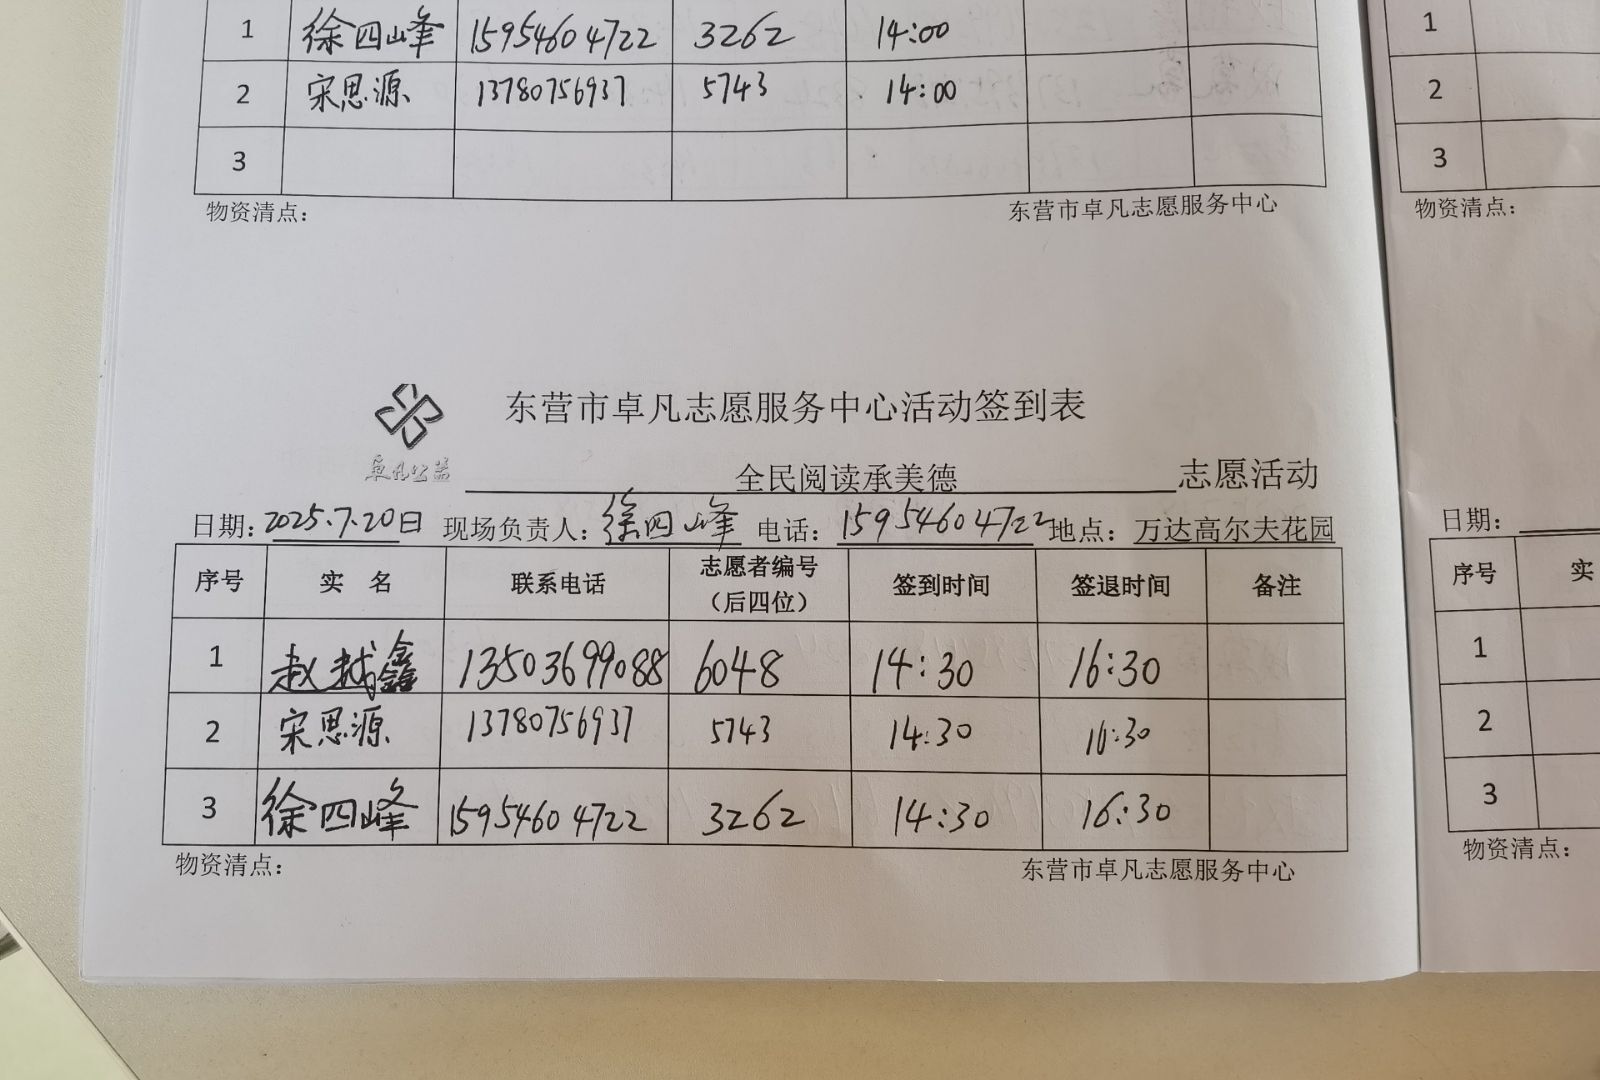 1 徐四峰 15954604722 3262 14:00
2 宋思源 13780756937 5743 14:00
3
物资清点： 东营市卓凡志愿服务中心
卓凡公益
东营市卓凡志愿服务中心活动签到表
全民阅读承美德 志愿活动
日期：2025.7.20日 现场负责人：徐四峰 电话：15954604722 地点：万达高尔夫花园
序号 实 名 联系电话 志愿者编号（后四位） 签到时间 签退时间 备注
1 赵越鑫 13503699088 6048 14:30 16:30
2 宋思源 13780756937 5743 14:30 16:30
3 徐四峰 15954604722 3262 14:30 16:30
物资清点： 东营市卓凡志愿服务中心
1
2
3
物资清点：
日期：
序号 实
1
2
3
物资清点：